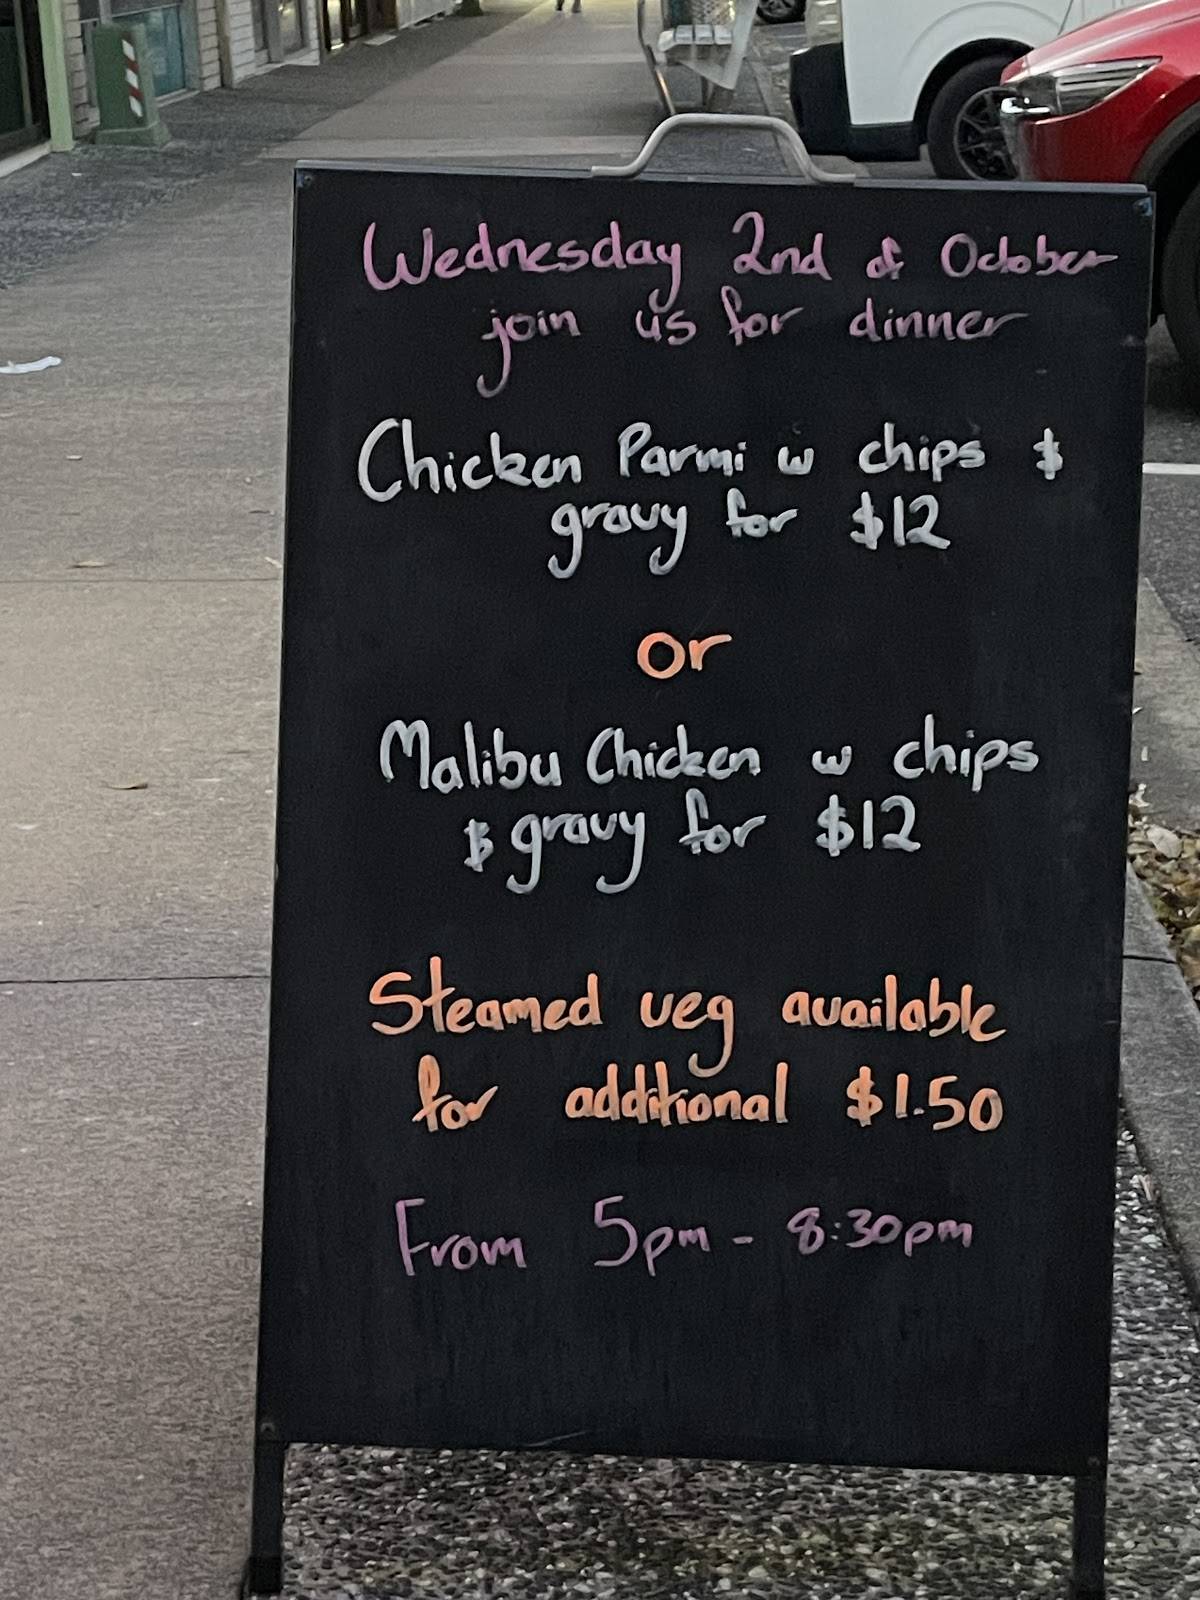 Wednesday 2nd of October
join us for dinner
Chicken Parmi w chips &
gravy for $12
or
Malibu Chicken w chips
& gravy for $12
Steamed veg available
for additional $1.50
From 5pm - 8:30pm